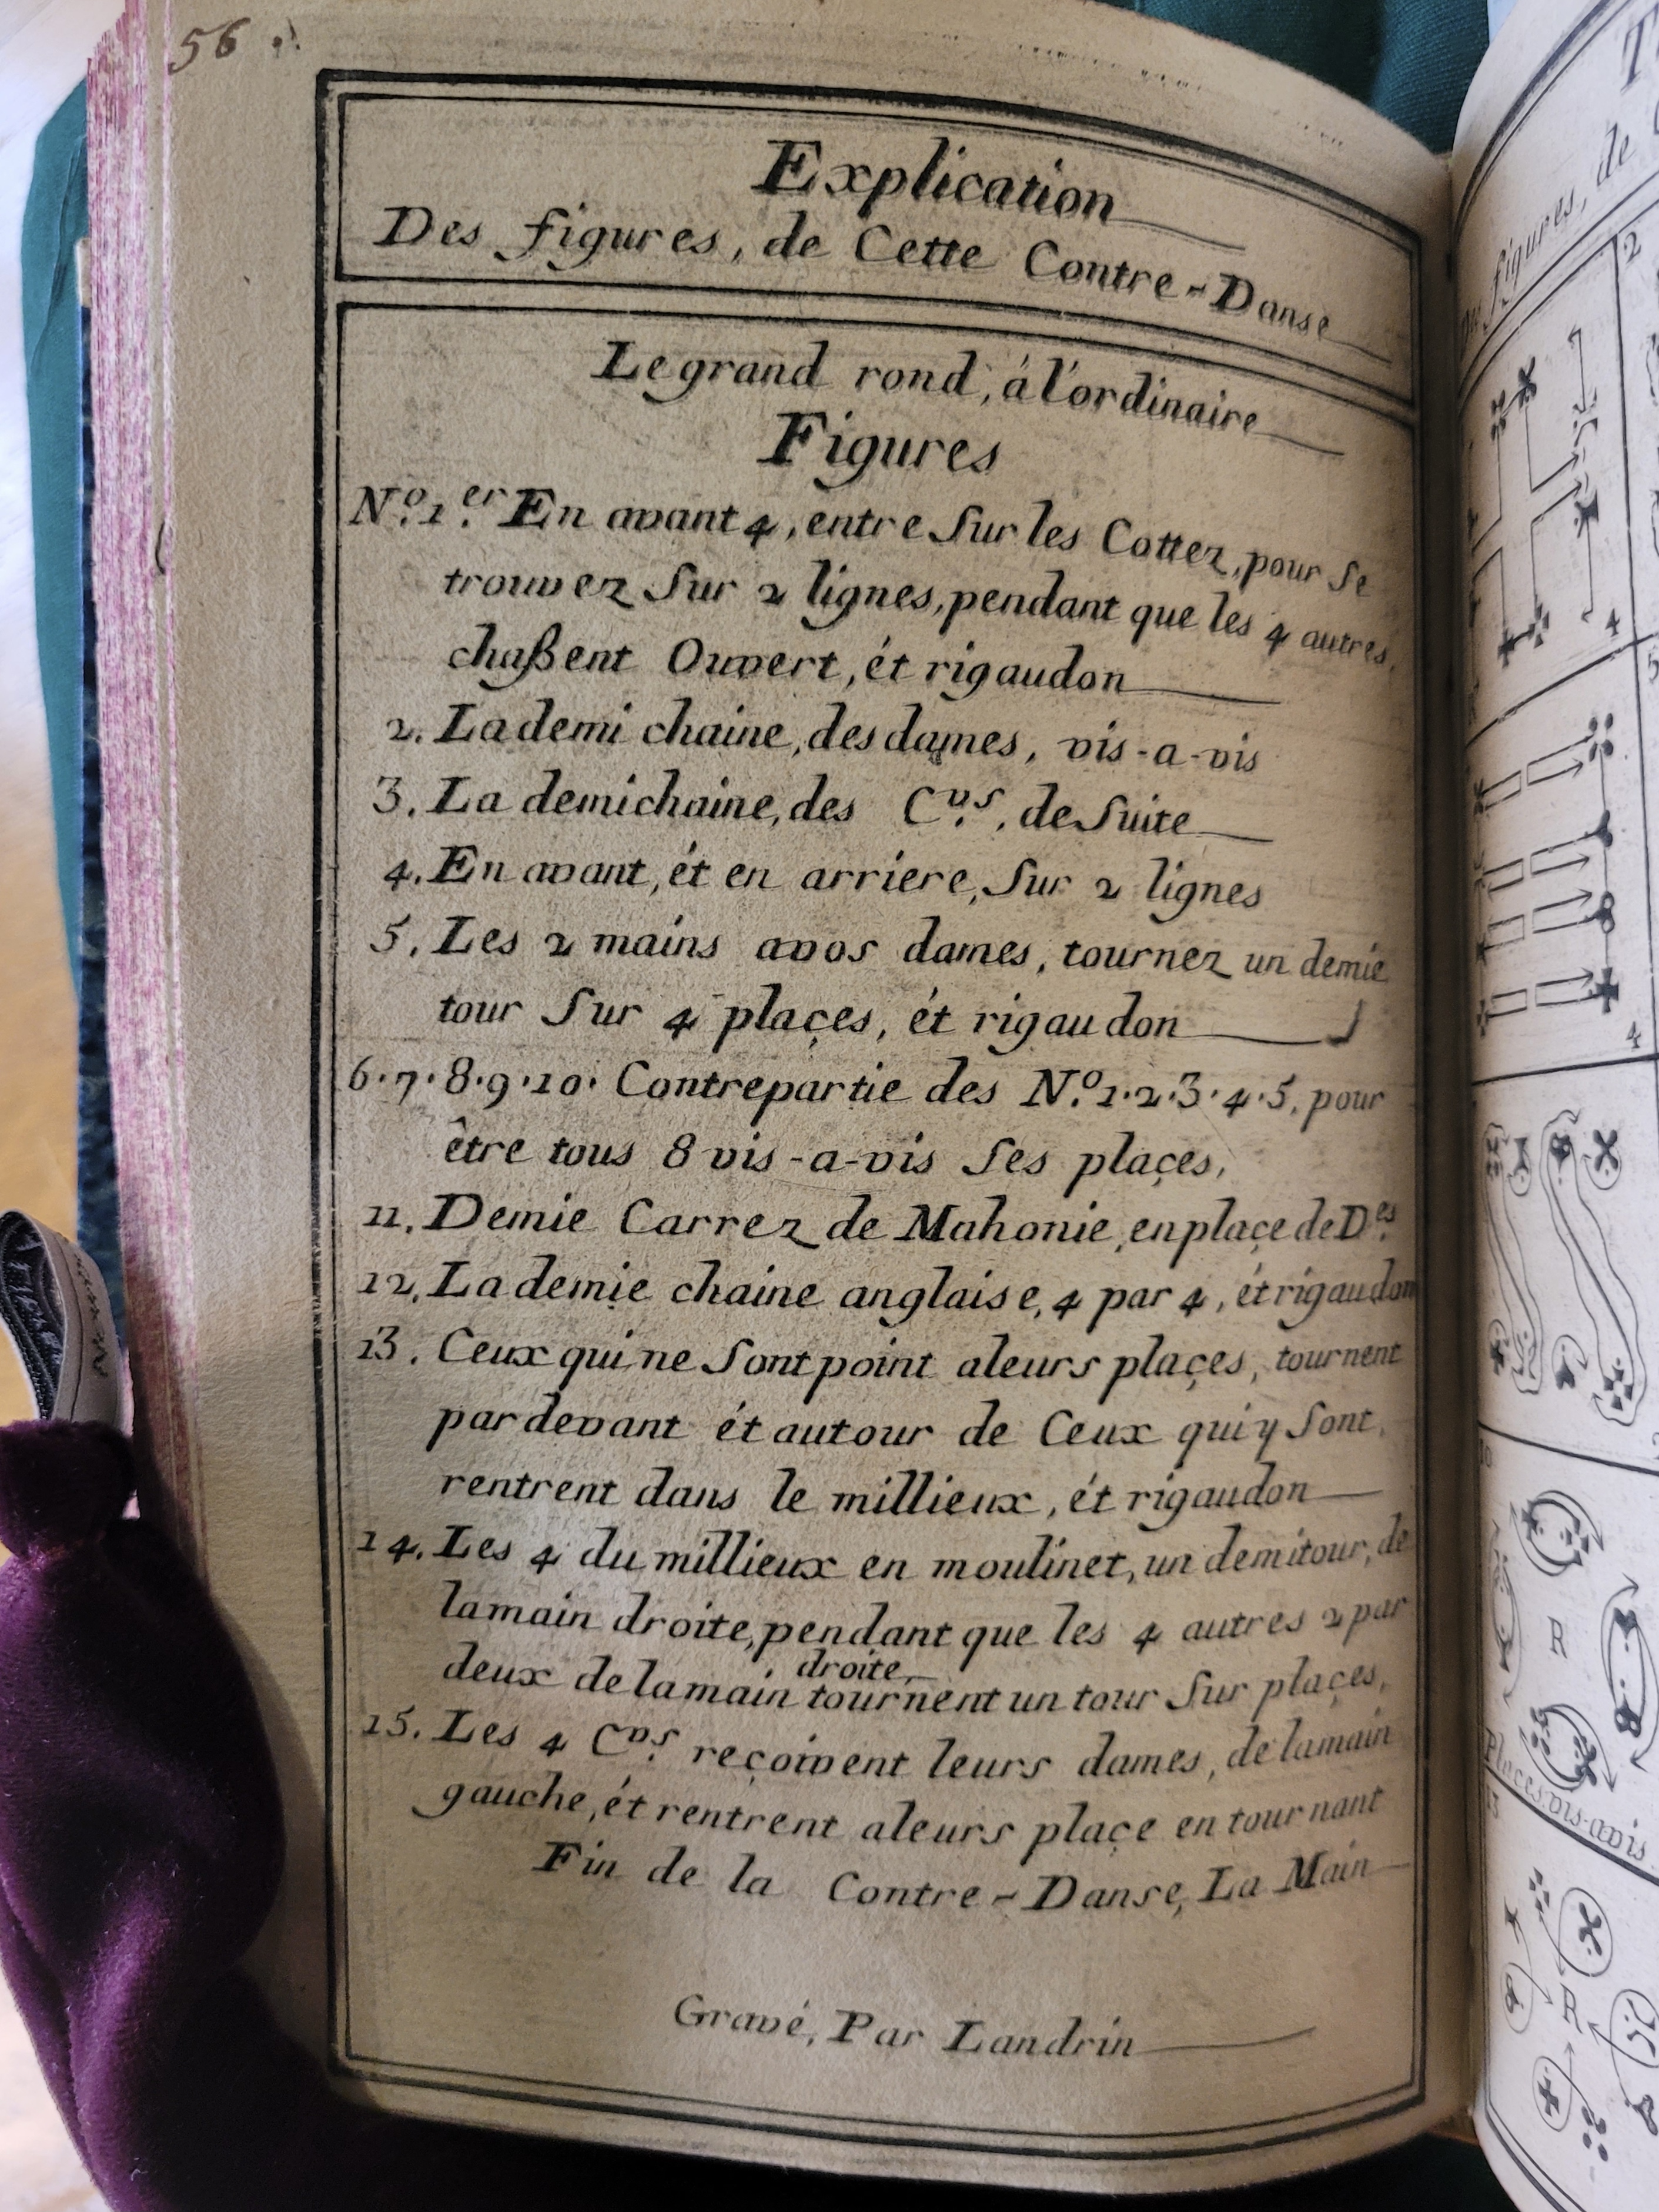 56.
Explication
Des figures, de Cette Contre-Danse
Le grand rond, á l'ordinaire
Figures
N.º 1.er En avant 4, entre Sur les Cottez, pour Se
trouvez Sur 2 lignes, pendant que les 4 autres,
chaßent Ouvert, ét rigaudon
2. La demi chaine, des dames, vis-a-vis
3. La demi chaine, des C.rs, de Suite
4. En avant, ét en arriere, Sur 2 lignes
5. Les 2 mains a vos dames, tournez un demie
tour Sur 4 plaçes, ét rigaudon
6.7.8.9.10. Contrepartie des N.º 1.2.3.4.5. pour
être tous 8 vis-a-vis Ses plaçes,
11. Demie Carrez de Mahonie, en plaçe de D.es
12. La demie chaine anglaise, 4 par 4, ét rigaudon
13. Ceux qui ne Sont point a leurs plaçes, tournent
par devant ét autour de Ceux qui y Sont,
rentrent dans le millieux, ét rigaudon
14. Les 4 du millieux en moulinet, un demi tour, de
la main droite, pendant que les 4 autres 2 par
deux de la main droite tournent un tour Sur plaçes,
15. Les 4 C.rs reçoivent leurs dames, de la main
gauche, ét rentrent a leurs plaçe en tournant
Fin de la Contre-Danse, La Main
Gravé, Par Landrin
figures, de
2
4
5
4
R
8
Places vis-a-vis
15
R
8